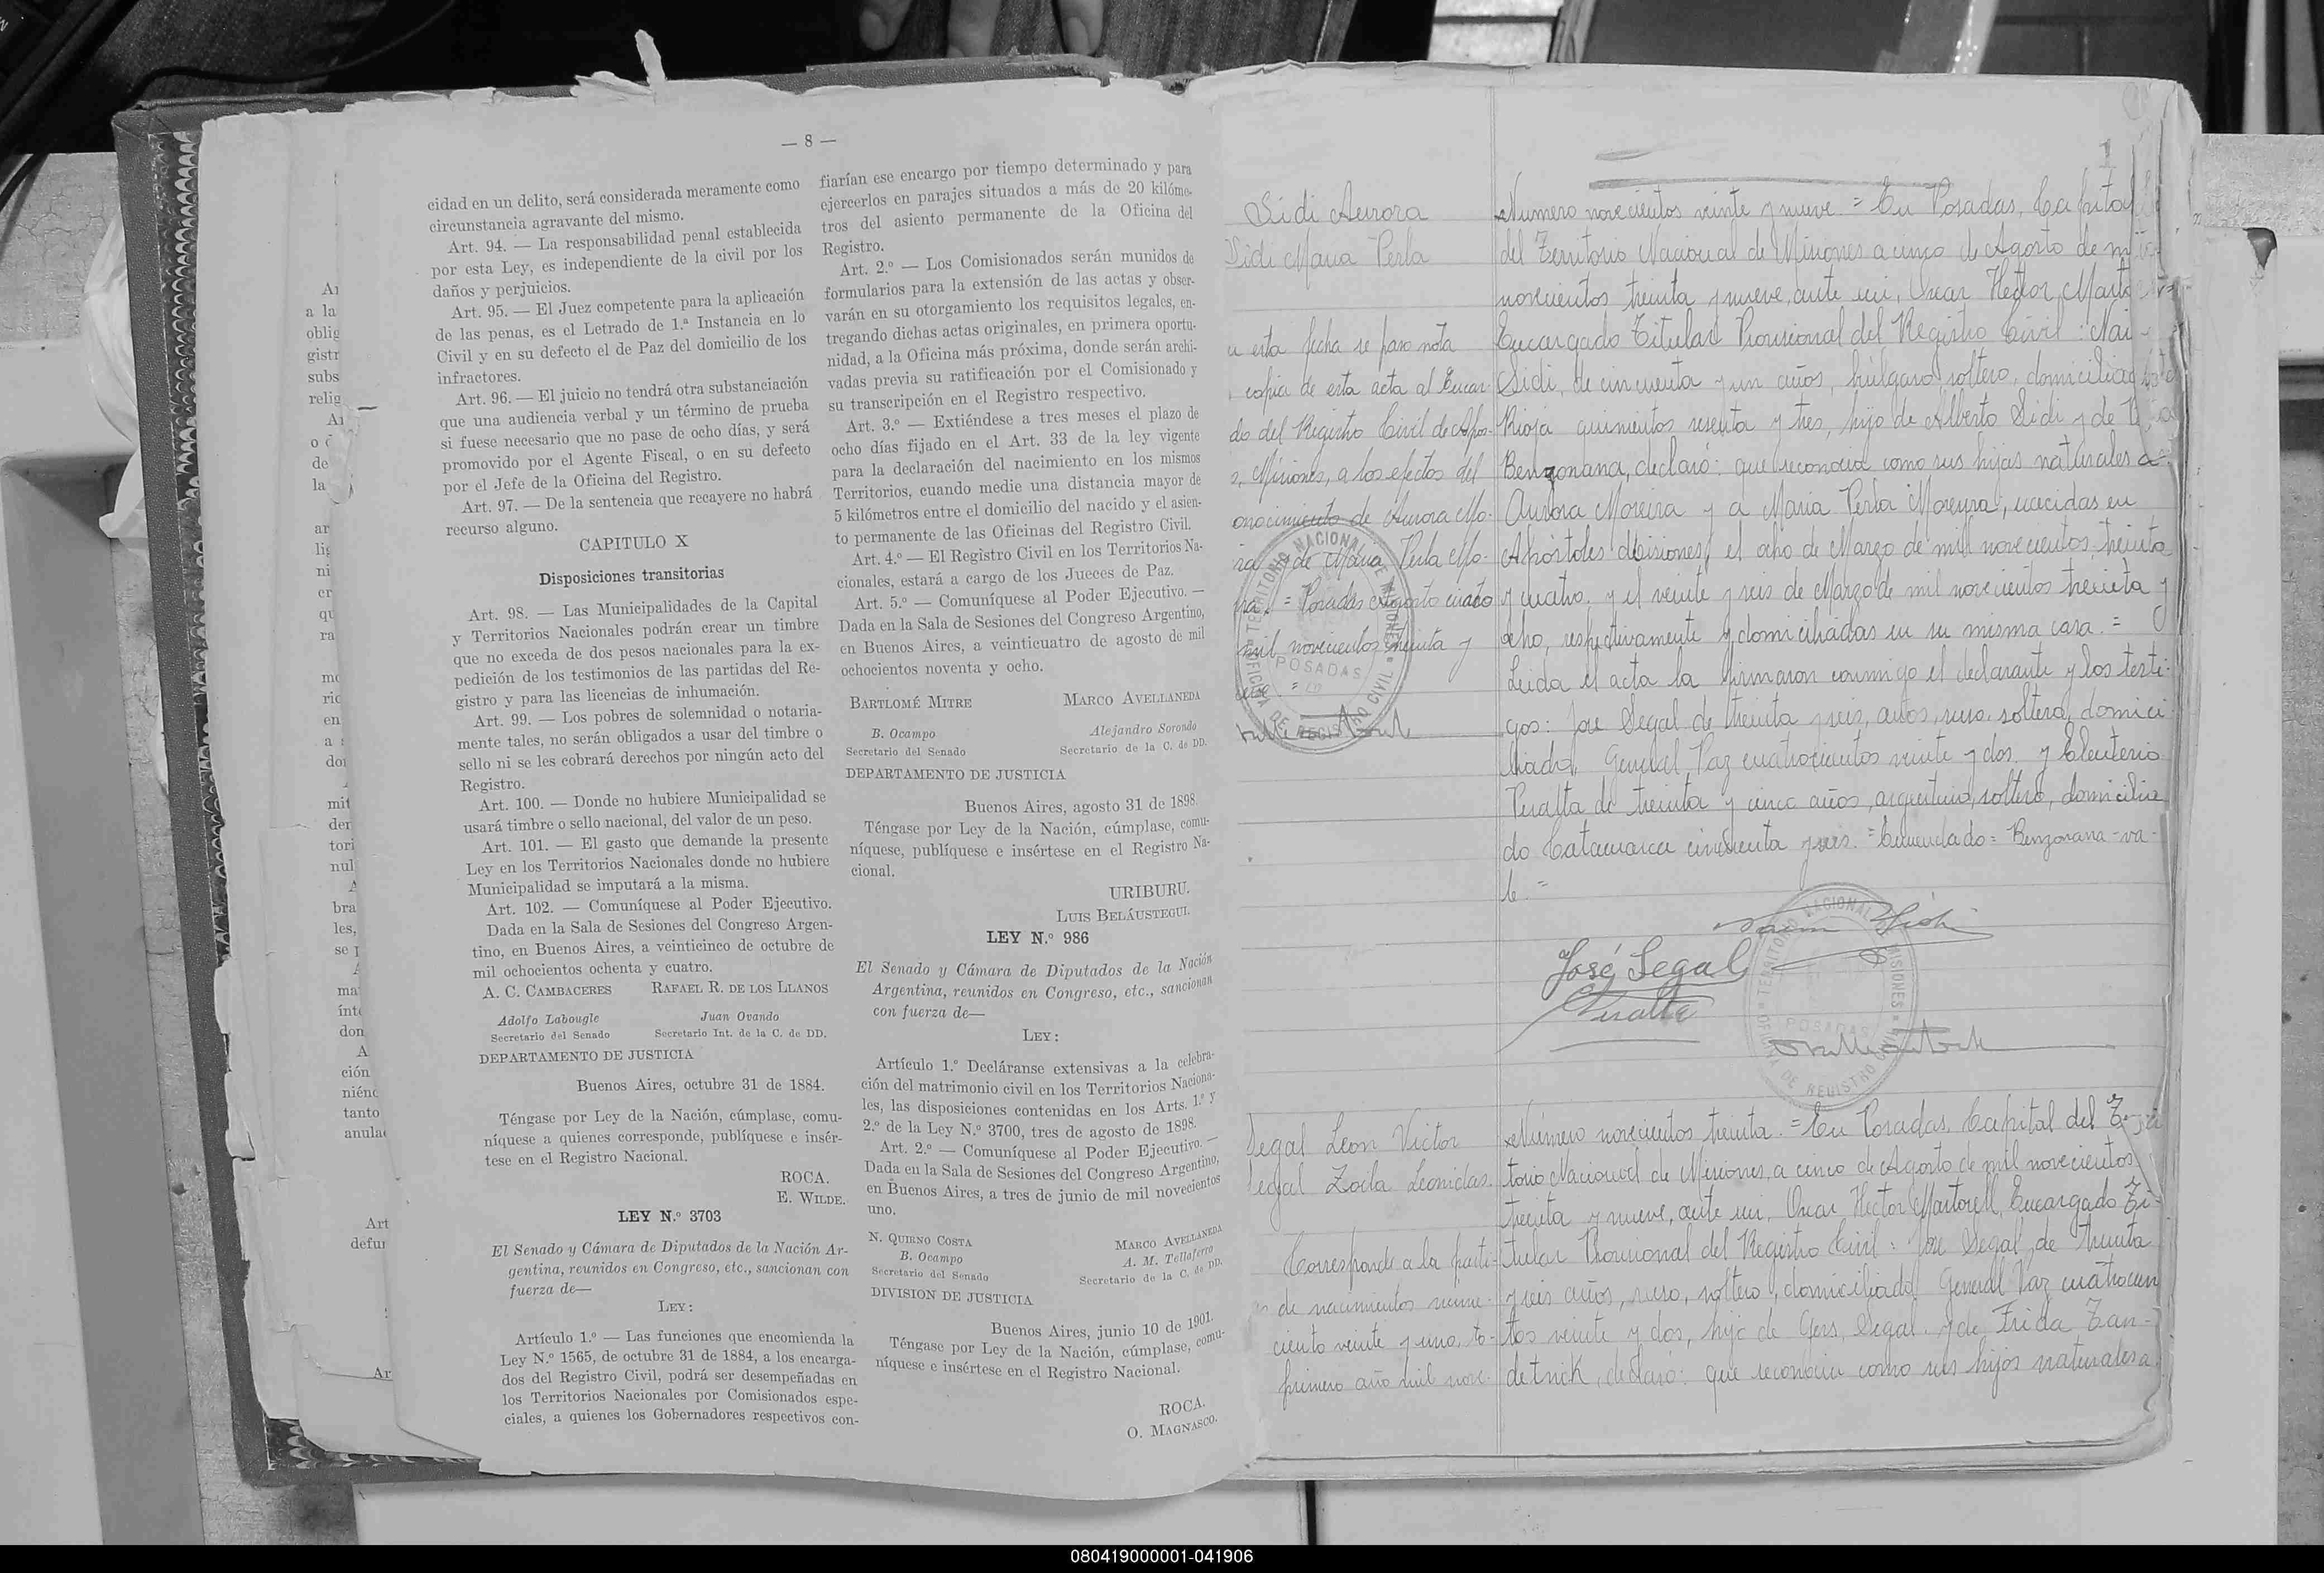 — 8 —
cidad en un delito, será considerada meramente como
circunstancia agravante del mismo.
Art. 94. — La responsabilidad penal establecida
por esta Ley, es independiente de la civil por los
daños y perjuicios.
Art. 95. — El Juez competente para la aplicación
de las penas, es el Letrado de 1.ª Instancia en lo
Civil y en su defecto el de Paz del domicilio de los
infractores.
Art. 96. — El juicio no tendrá otra substanciación
que una audiencia verbal y un término de prueba
si fuese necesario que no pase de ocho días, y será
promovido por el Agente Fiscal, o en su defecto
por el Jefe de la Oficina del Registro.
Art. 97. — De la sentencia que recayere no habrá
recurso alguno.
CAPITULO X
Disposiciones transitorias
Art. 98. — Las Municipalidades de la Capital
y Territorios Nacionales podrán crear un timbre
que no exceda de dos pesos nacionales para la ex-
pedición de los testimonios de las partidas del Re-
gistro y para las licencias de inhumación.
Art. 99. — Los pobres de solemnidad o notaria-
mente tales, no serán obligados a usar del timbre o
sello ni se les cobrará derechos por ningún acto del
Registro.
Art. 100. — Donde no hubiere Municipalidad se
usará timbre o sello nacional, del valor de un peso.
Art. 101. — El gasto que demande la presente
Ley en los Territorios Nacionales donde no hubiere
Municipalidad se imputará a la misma.
Art. 102. — Comuníquese al Poder Ejecutivo.
Dada en la Sala de Sesiones del Congreso Argen-
tino, en Buenos Aires, a veinticinco de octubre de
mil ochocientos ochenta y cuatro.
A. C. CAMBACERES RAFAEL R. DE LOS LLANOS
Adolfo Labougle Juan Ovando
Secretario del Senado Secretario Int. de la C. de DD.
DEPARTAMENTO DE JUSTICIA
Buenos Aires, octubre 31 de 1884.
Téngase por Ley de la Nación, cúmplase, comu-
níquese a quienes corresponde, publíquese e insér-
tese en el Registro Nacional.
ROCA.
E. WILDE.
LEY N.º 3703
El Senado y Cámara de Diputados de la Nación Ar-
gentina, reunidos en Congreso, etc., sancionan con
fuerza de—
LEY:
Artículo 1.º — Las funciones que encomienda la
Ley N.º 1565, de octubre 31 de 1884, a los encarga-
dos del Registro Civil, podrá ser desempeñadas en
los Territorios Nacionales por Comisionados espe-
ciales, a quienes los Gobernadores respectivos con-
fiarían ese encargo por tiempo determinado y para
ejercerlos en parajes situados a más de 20 kilóme-
tros del asiento permanente de la Oficina del
Registro.
Art. 2.º — Los Comisionados serán munidos de
formularios para la extensión de las actas y obser-
varán en su otorgamiento los requisitos legales, en-
tregando dichas actas originales, en primera oportu-
nidad, a la Oficina más próxima, donde serán archi-
vadas previa su ratificación por el Comisionado y
su transcripción en el Registro respectivo.
Art. 3.º — Extiéndese a tres meses el plazo de
ocho días fijado en el Art. 33 de la ley vigente
para la declaración del nacimiento en los mismos
Territorios, cuando medie una distancia mayor de
5 kilómetros entre el domicilio del nacido y el asien-
to permanente de las Oficinas del Registro Civil.
Art. 4.º — El Registro Civil en los Territorios Na-
cionales, estará a cargo de los Jueces de Paz.
Art. 5.º — Comuníquese al Poder Ejecutivo. —
Dada en la Sala de Sesiones del Congreso Argentino,
en Buenos Aires, a veinticuatro de agosto de mil
ochocientos noventa y ocho.
BARTLOMÉ MITRE MARCO AVELLANEDA
B. Ocampo Alejandro Sorondo
Secretario del Senado Secretario de la C. de DD.
DEPARTAMENTO DE JUSTICIA
Buenos Aires, agosto 31 de 1898.
Téngase por Ley de la Nación, cúmplase, comu-
níquese, publíquese e insértese en el Registro Na-
cional.
URIBURU.
LUIS BELÁUSTEGUI.
LEY N.º 986
El Senado y Cámara de Diputados de la Nación
Argentina, reunidos en Congreso, etc., sancionan
con fuerza de—
LEY:
Artículo 1.º Decláranse extensivas a la celebra-
ción del matrimonio civil en los Territorios Naciona-
les, las disposiciones contenidas en los Arts. 1.º y
2.º de la Ley N.º 3700, tres de agosto de 1898.
Art. 2.º — Comuníquese al Poder Ejecutivo. —
Dada en la Sala de Sesiones del Congreso Argentino,
en Buenos Aires, a tres de junio de mil novecientos
uno.
N. QUIRNO COSTA MARCO AVELLANEDA
B. Ocampo A. M. Tallaferro
Secretario del Senado Secretario de la C. de DD.
DIVISION DE JUSTICIA
Buenos Aires, junio 10 de 1901.
Téngase por Ley de la Nación, cúmplase, comu-
níquese e insértese en el Registro Nacional.
ROCA.
O. MAGNASCO.
1
Sidi Aurora
Sidi Maria Perla
esta fecha se paso nota
copia de esta acta al Encar-
do del Registro Civil de Apos-
Misiones, a los efectos del
onocimiento de Aurora Mo-
de Maria Perla Mo-
= Posadas Agosto cinco
mil novecientos treinta y
Numero novecientos veinte y nueve. = En Posadas, Capital
del Territorio Nacional de Misiones a cinco de Agosto de mil
novecientos treinta y nueve, ante mi, Oscar Hector Marto
Encargado Titular Provisional del Registro Civil: Nai-
Sidi, de cincuenta y un años, búlgaro, soltero, domiciliado
Rioja quinientos sesenta y tres, hijo de Alberto Sidi y de
Benzonana, declaró: que reconocia como sus hijas naturales a
Aurora Moreira y a Maria Perla Moreira, nacidas en
Apóstoles Misiones, el ocho de Marzo de mil novecientos treinta
y cuatro, y el veinte y seis de Marzo de mil novecientos treinta y
ocho, respectivamente y domiciliadas en su misma casa. =
Leida el acta la firmaron conmigo el declarante y los testi-
gos: José Segal de treinta y seis, años, ruso, soltero, domici
liado, General Paz cuatrocientos veinte y dos, y Eleuterio
Peralta de treinta y cinco años, argentino, soltero, domicilia
do Catamarca cincuenta y seis. = Enmendado = Benzonana - va -
le. =
José Segal
Peralta
TERRITORIO NACIONAL DE MISIONES
OFICINA DE REGISTRO CIVIL
POSADAS
TERRITORIO NACIONAL DE MISIONES
OFICINA DE REGISTRO CIVIL
POSADAS
Segal Leon Victor
Segal Zoila Leonidas
Corresponde a la parti-
de nacimientos nume-
ciento veinte y uno, to-
primero año mil nove-
Número novecientos treinta. = En Posadas, Capital del Terri
torio Nacional de Misiones, a cinco de Agosto de mil novecientos
treinta y nueve, ante mi, Oscar Hector Martorell, Encargado Ti-
tular Provisional del Registro Civil: José Segal, de treinta
y seis años, ruso, soltero, domiciliado General Paz cuatrocien
tos veinte y dos, hijo de Gers, Segal, y de Frida Zan-
detnick, declaró: que reconocia como sus hijos naturales a
080419000001-041906